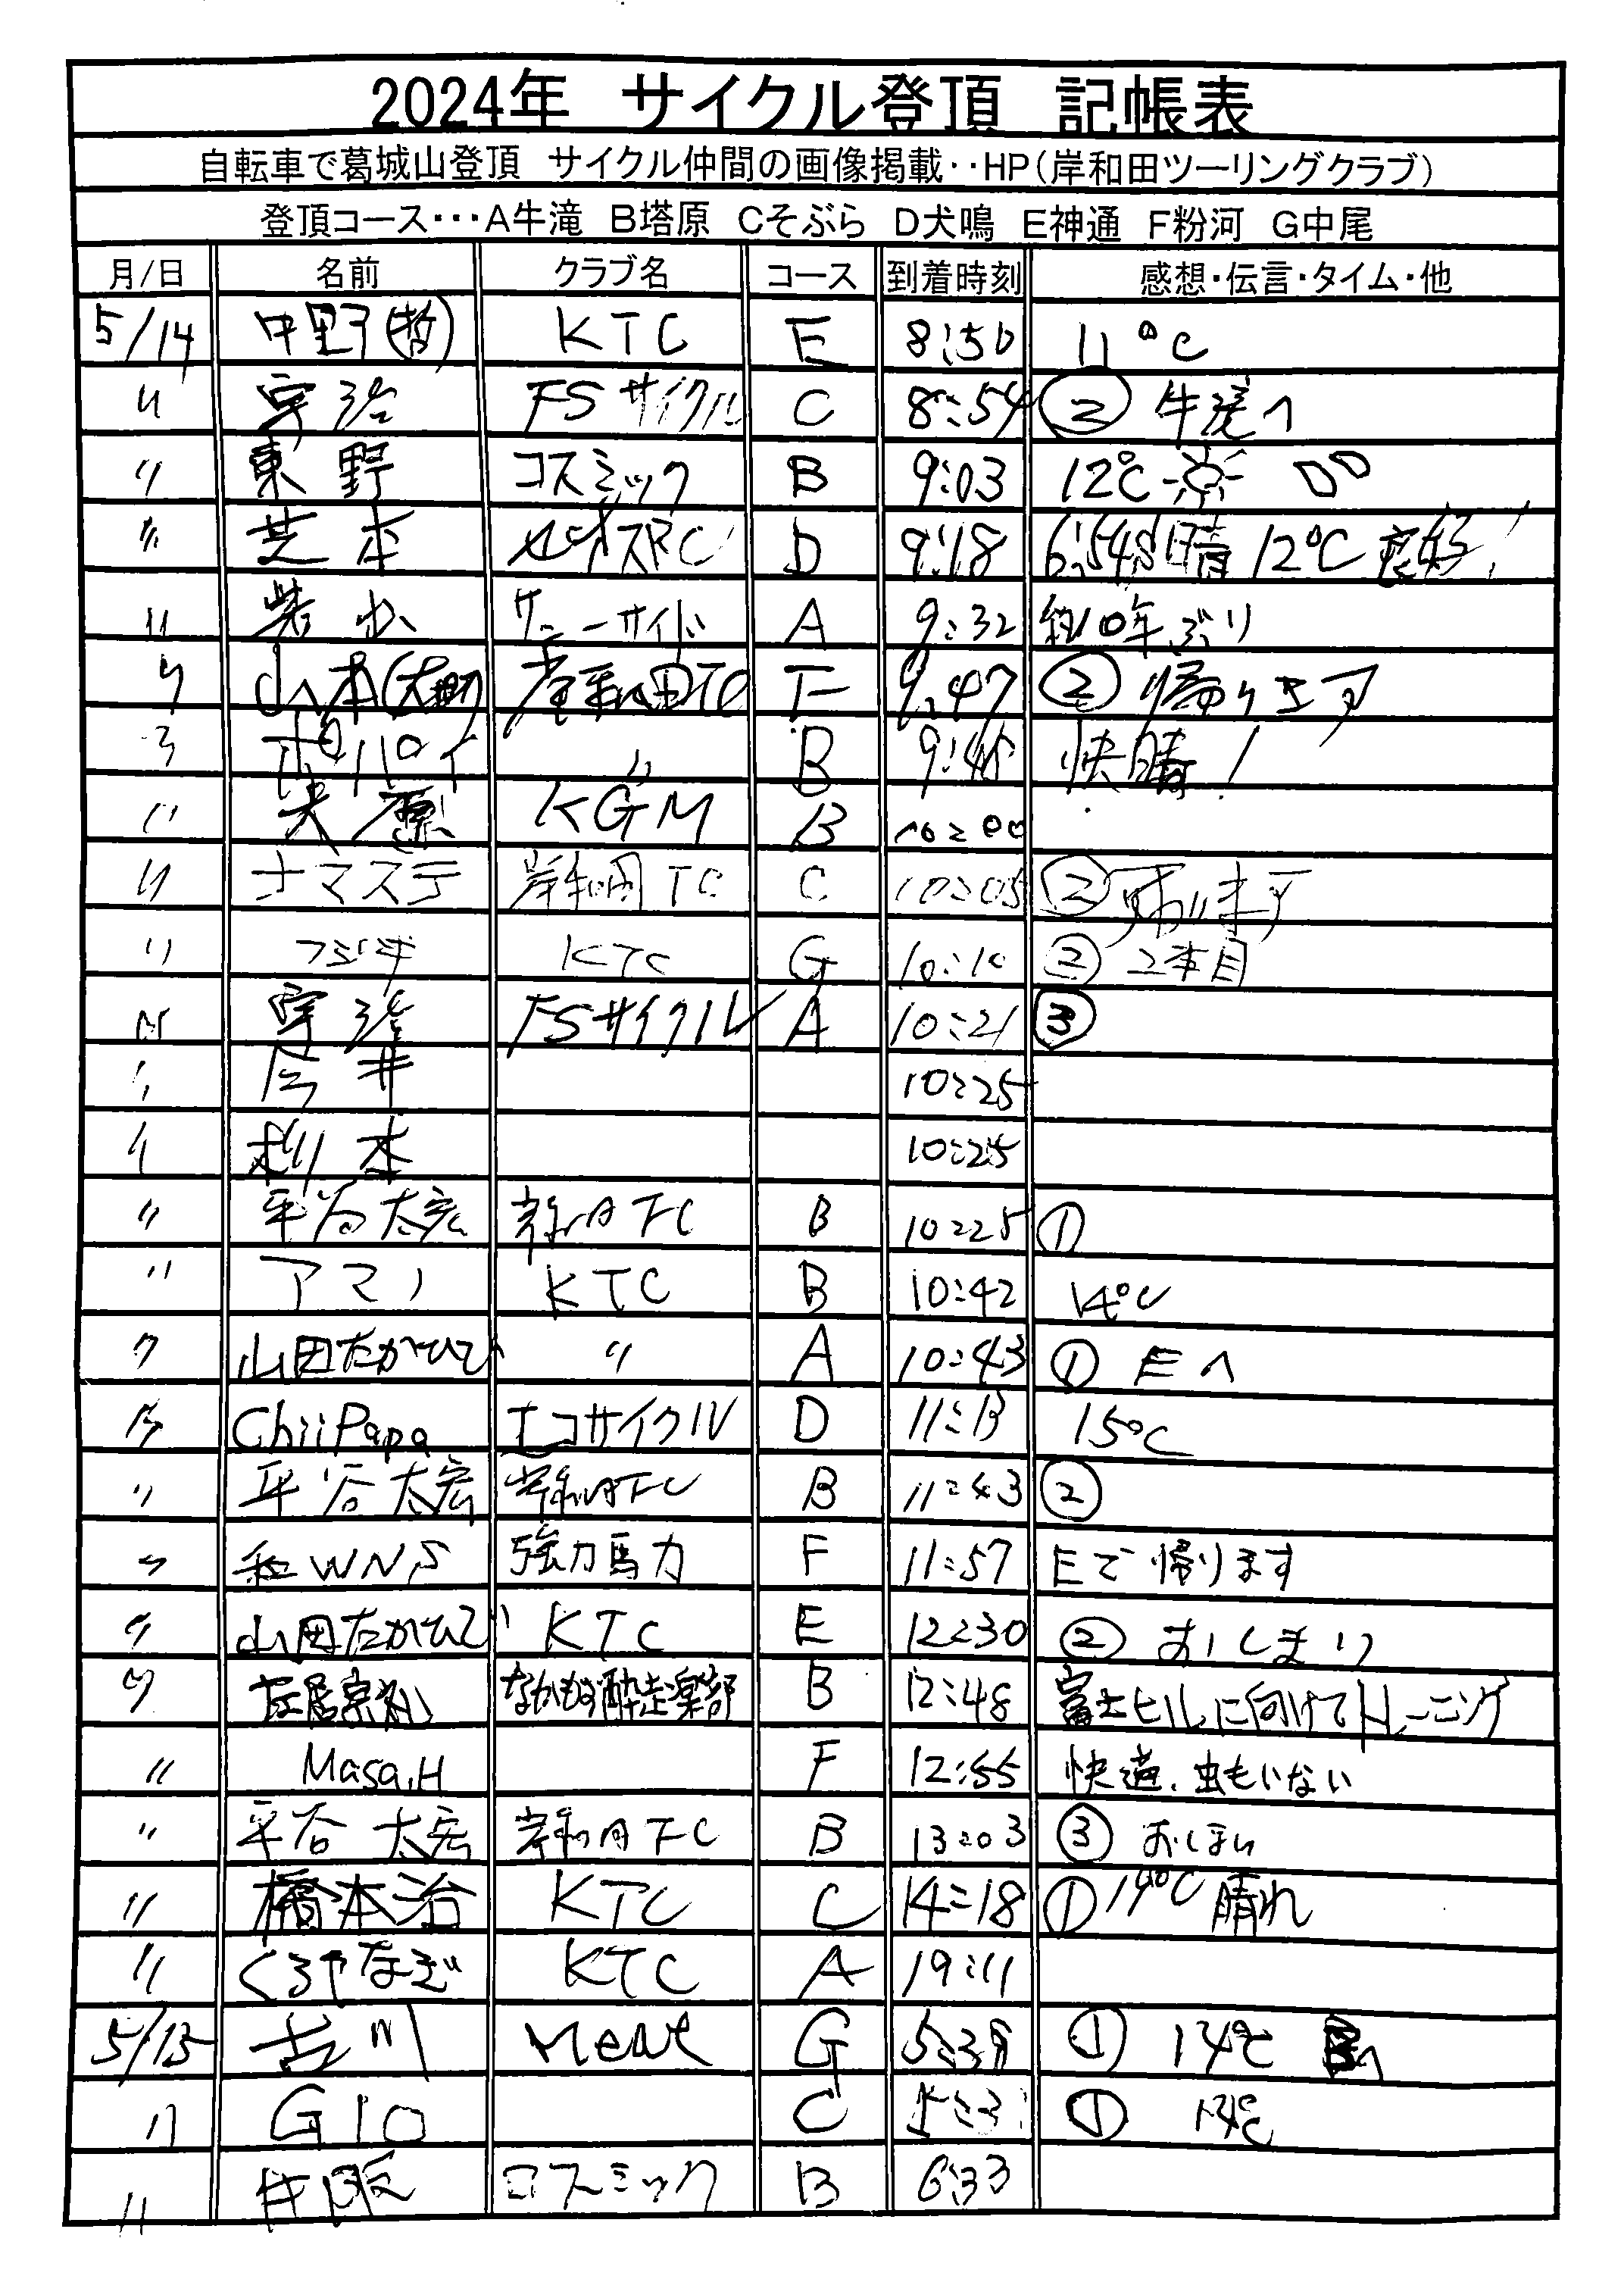 2024年 サイクル登頂 記帳表
自転車で葛城山登頂 サイクル仲間の画像掲載‥HP(岸和田ツーリングクラブ)
登頂コース‥‥A牛滝 B塔原 Cそぶら D犬鳴 E神通 F粉河 G中尾
月/日 名前 クラブ名 コース 到着時刻 感想・伝言・タイム・他
5/14 中野(哲) KTC E 8:50 11°C
〃 宇治 FSサイクル C 8:54 ② 牛滝へ
〃 東野 コスミック B 9:03 12℃
〃 芝本 RC D 9:18 晴 12℃
〃 サニーサイド A 9:32 約10年ぶり
〃 山本 岸和田TC F 9:47 ② 帰ります
〃 ポパイ 〃 B 快晴!
〃 KGM B 10:00
〃 ナマステ 岸和田TC C 10:05 ②
〃 フジキ KTC G 10:10 ② 2本目
〃 宇治 FSサイクル A 10:21 ③
〃 今井 10:25
〃 杉本 10:25
〃 平谷太宏 岸和田TC B 10:25 ①
〃 アマノ KTC B 10:42 14℃
〃 山田たかひび 〃 A 10:43 ① Eへ
〃 ChiiPapa エコサイクル D 11:13 15℃
〃 平谷太宏 岸和田TC B 11:43 ②
〃 和WNS 強力馬力 F 11:57 Eで帰ります
〃 山田たかひび KTC E 12:30 ② おしまい
〃 なかもず酔走楽部 B 12:48 富士ヒルに向けてトレーニング
〃 Masa.H F 12:55 快適、虫もいない
〃 平谷太宏 岸和田TC B 13:03 ③ おしまい
〃 橋本治 KTC C 14:18 ① 19℃ 晴れ
〃 くろやなぎ KTC A 19:11
5/15 古川 G 5:39 ① 14℃
〃 G10 C ① 14℃
〃 井阪 コスミック B 6:33